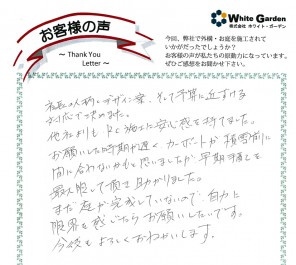 お客様の声
～ Thank You
Letter ～
White Garden
株式会社 ホワイト・ガーデン
今回、弊社で外構・お庭を施工されて
いかがだったでしょうか？
お客様の声が私たちの原動力になっています。
ぜひご感想をお聞かせ下さい。
社長人柄・デザイン案、そして予算に近ずける
対応で決めました。
他社よりも 施工に安心感を持てました。
お願いした時期が遅く カーポートが 積雪前に
間に合わないかもと思いましたが、早期手配も
最大限して頂き 助かりました。
まだ庭が完成していないので、自力に
限界を感じたらお願いしたいです。
今後もよろしくおねがいします。